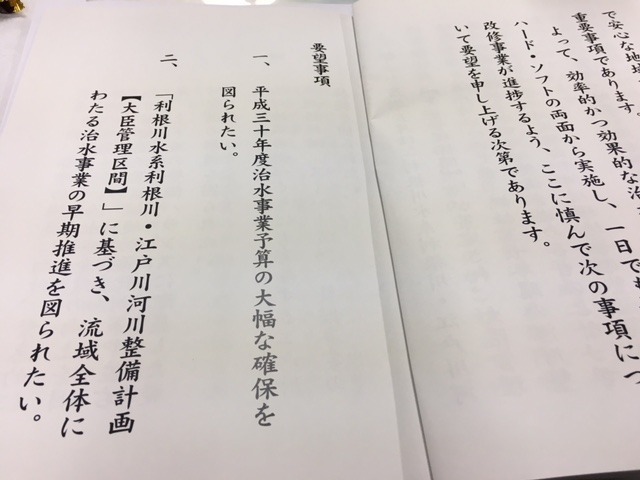 で安心な地域
重要事項であります。
よって、効率的かつ効果的な治
ハード・ソフトの両面から実施し、一日でも
改修事業が進捗するよう、ここに慎んで次の事項につ
いて要望を申し上げる次第であります。
要望事項
一、平成三十年度治水事業予算の大幅な確保を
図られたい。
二、「利根川水系利根川・江戸川河川整備計画
【大臣管理区間】」に基づき、流域全体に
わたる治水事業の早期推進を図られたい。